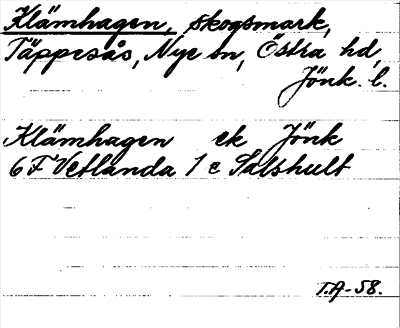 Klämhagen, skogsmark,
Täppesås, Nye sn, Östra hd,
Jönk. l.
Klämhagen ek Jönk
6 F Vetlanda 1 e Salshult
T.A-58.